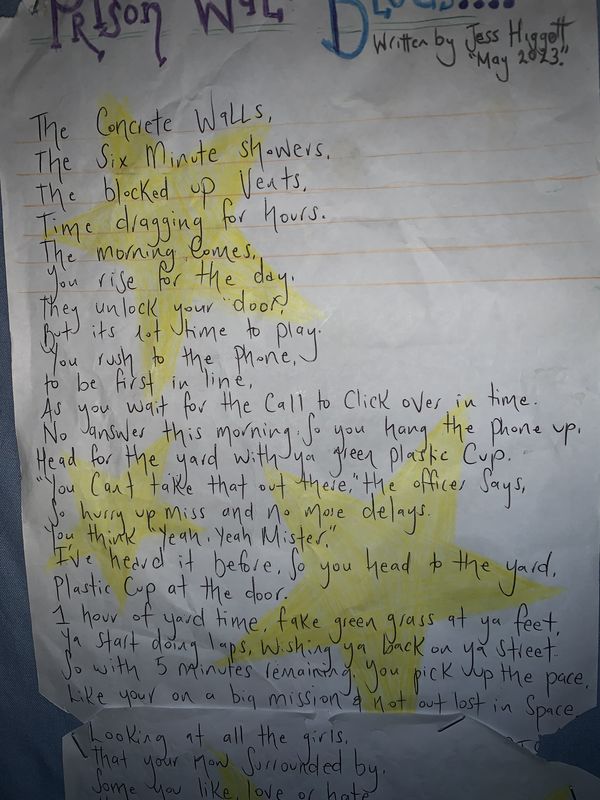 Prison Wall Blues....
Written by Jess Higgott
"May 2023."
The Concrete Walls,
The Six Minute Showers,
The blocked up Vents,
Time dragging for hours.
The morning Comes,
You rise for the day.
They unlock your "door,"
But its not time to play.
You rush to the Phone,
to be first in line,
As you wait for the Call to Click over in time.
No answer this morning. So you hang the phone up,
Head for the yard with ya green Plastic Cup.
"You Cant take that out there," the officer Says,
So hurry up miss and no more delays.
You think "Yeah, Yeah Mister."
I've heard it before, So you head to the yard,
Plastic Cup at the door.
1 hour of yard time, fake green grass at ya feet,
Ya start doing laps, Wishing ya back on ya Street.
So with 5 minutes remaining. You pick up the pace,
Like your on a big mission & not out lost in Space
Looking at all the girls,
That your Now Surrounded by.
Some you like, love or hate